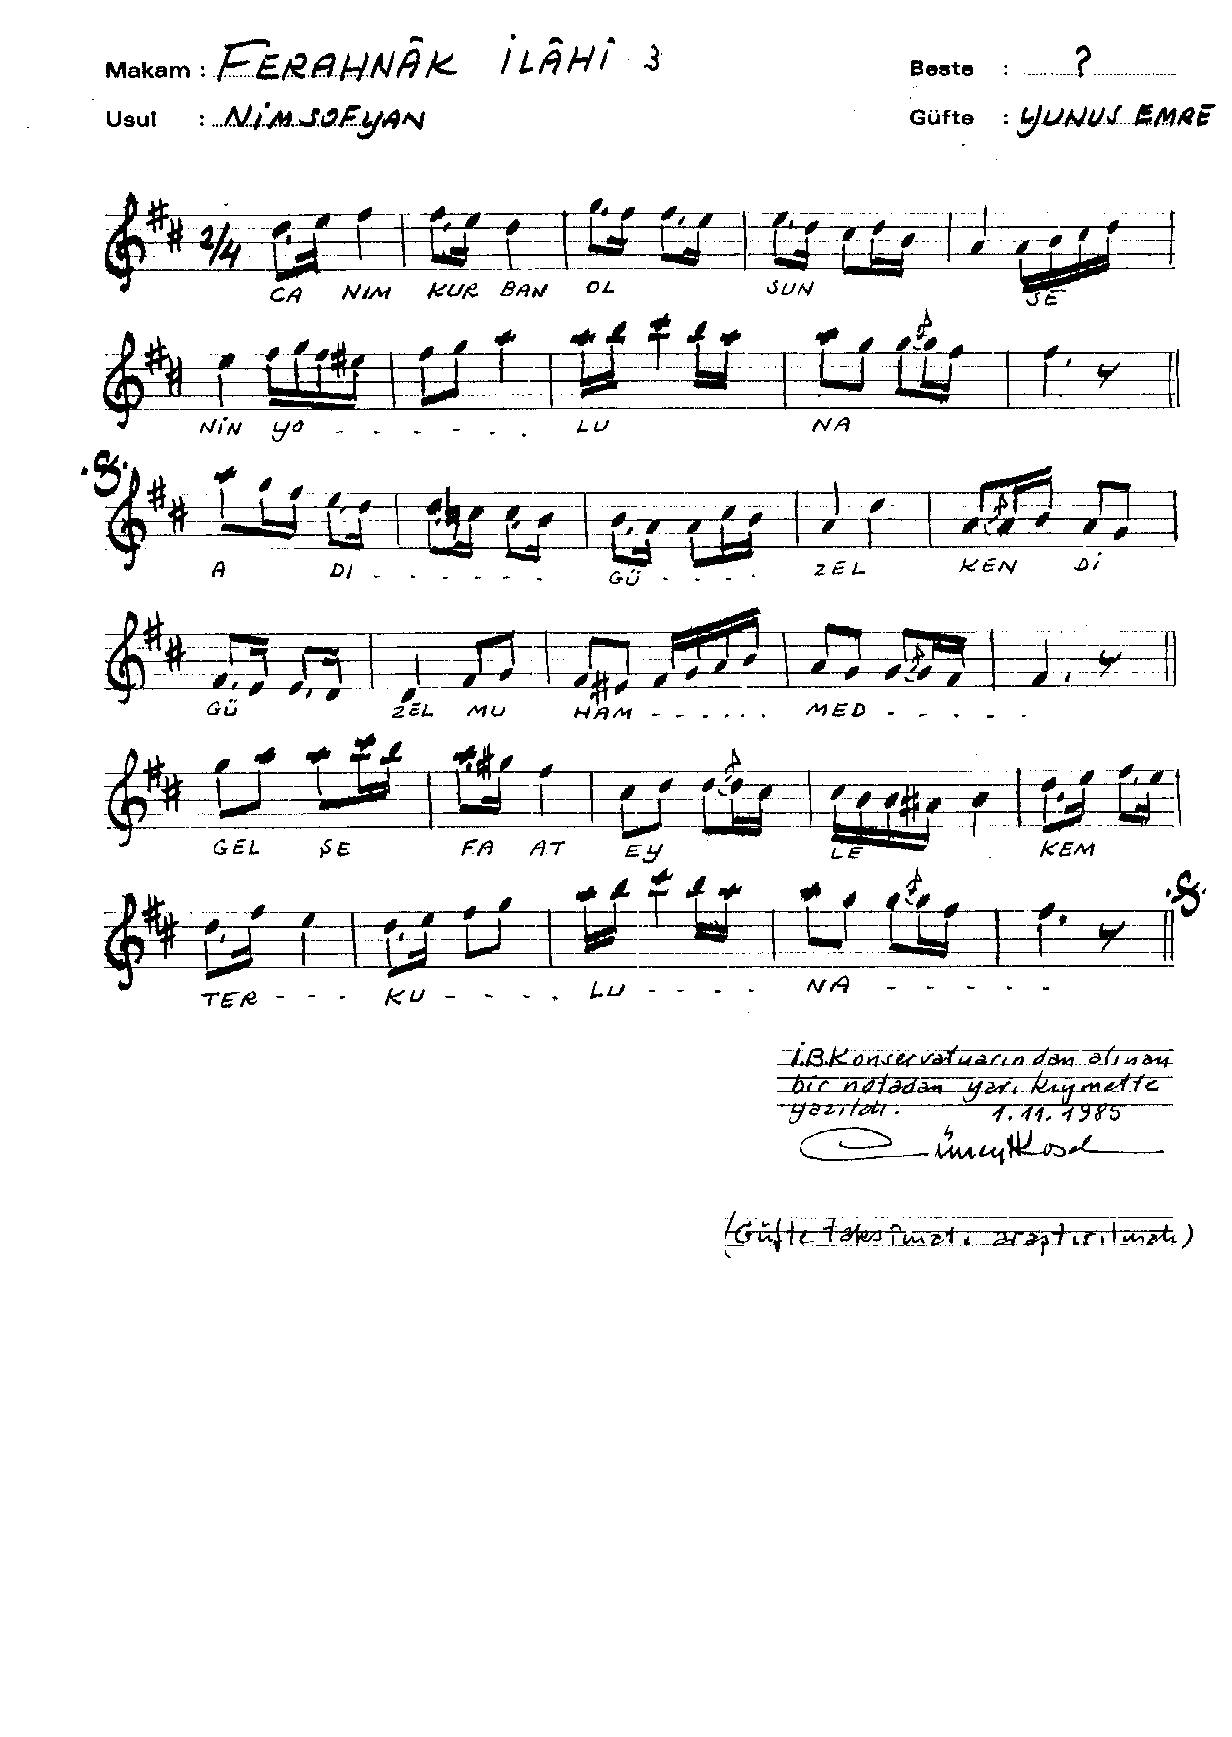 Makam : FERAHNÂK İLÂHİ 3 Beste : ?
Usul : NİMSOFYAN Güfte : YUNUS EMRE
2/4
CA NIM KUR BAN OL SUN SE
NİN YO - - - - - . LU NA
A DI - - - - - - GÜ - - - - ZEL KEN Dİ
GÜ ZEL MU HAM - - - - - . MED - - - - -
GEL ŞE FA AT EY LE KEM
TER - - - KU - - - - . LU - - - - NA - - - - -
İ.B.Konservatuarından alınan
bir notadan yarı kıymette
yazıldı. 1.11.1985
Cüneyt Kosal
(Güfte taksimatı araştırılmalı)